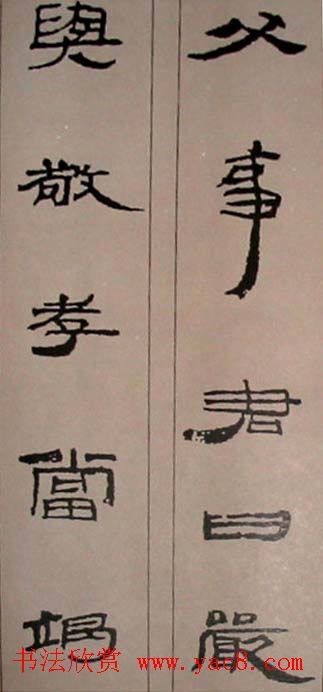 父事君曰嚴
與敬孝當竭
书法欣赏 www.yac8.com